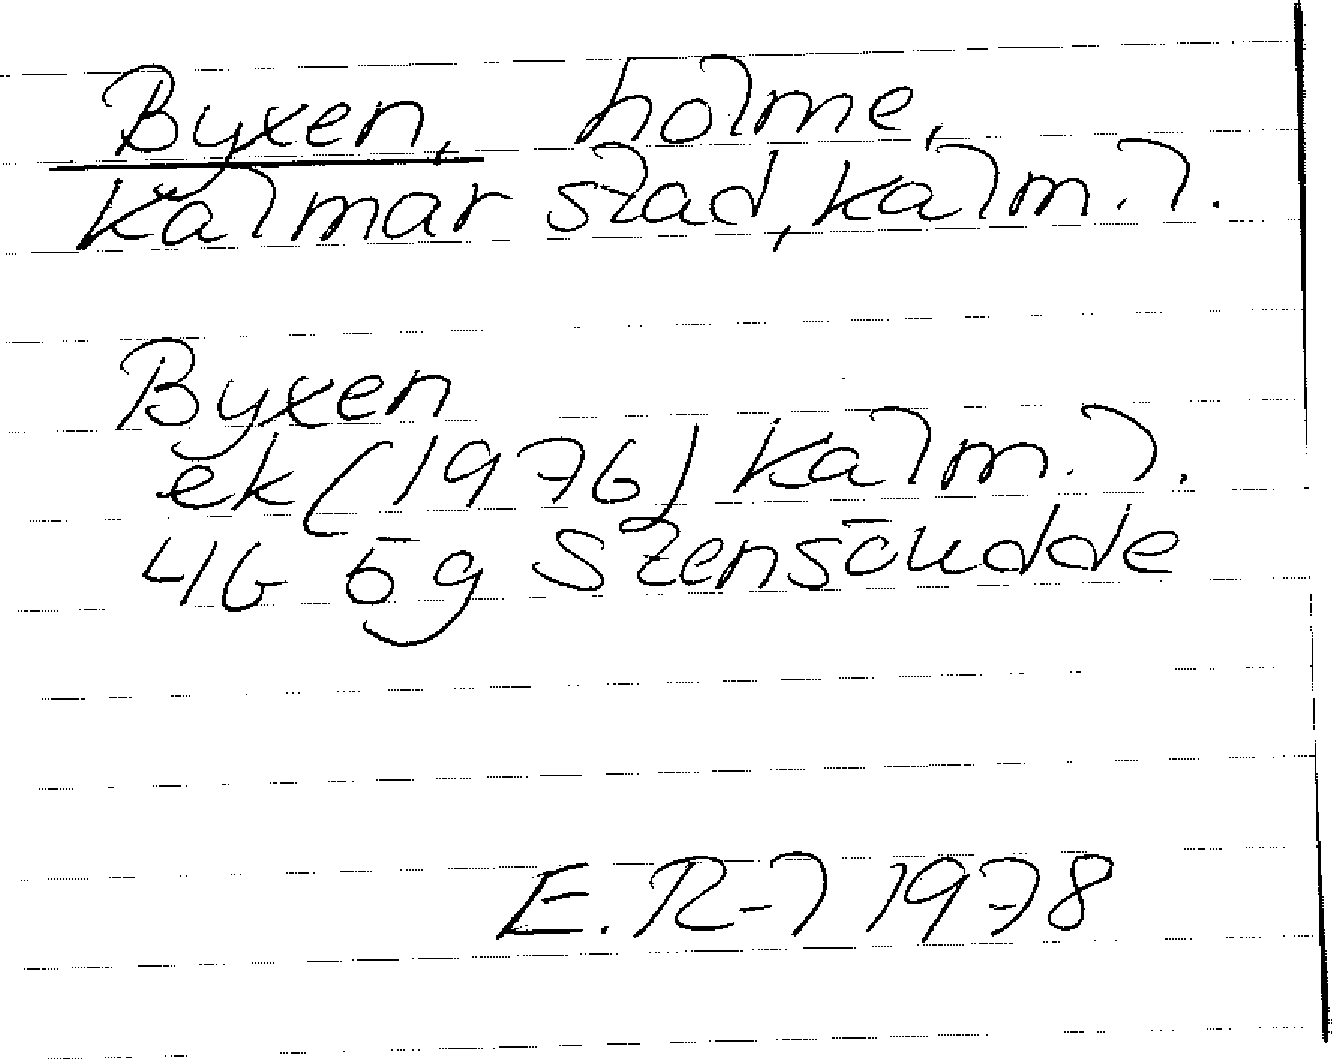 Byxen, holme,
Kalmar stad, Kalm. l.
Byxen
ek (1976) Kalm. l.
4G 5g Stensöudde
E. R-l 1978